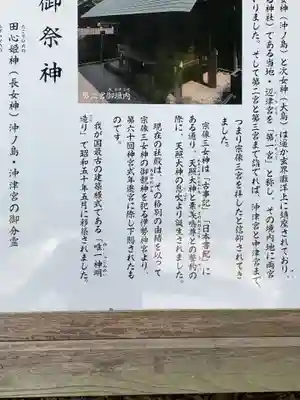 女神(沖ノ島)と次女神(大島)は遥か玄界灘洋上に鎮座されており、
社)である当地・辺津宮を「第一宮」と称し、その境内地に両宮
りました。そして第二宮と第三宮まで詣でれば、沖津宮と中津宮まで
つまり宗像三宮を拝したと信仰されてき
ました。
宗像三女神は、『古事記』『日本書紀』に
ある通り、天照大神と素戔嗚尊との誓約の
際に、天照大神の息吹より誕生されました。
現在の社殿は、その格別の由緒を以って
宗像三女神の御親神を祀る伊勢神宮より、
第六十回神宮式年遷宮に際し下賜されたも
のです。
我が国最古の建築様式である「唯一神明
造り」で昭和五十年五月に移築されました。
第二宮御垣内
御祭神
田心姫神(長女神)沖ノ島・沖津宮の御分霊